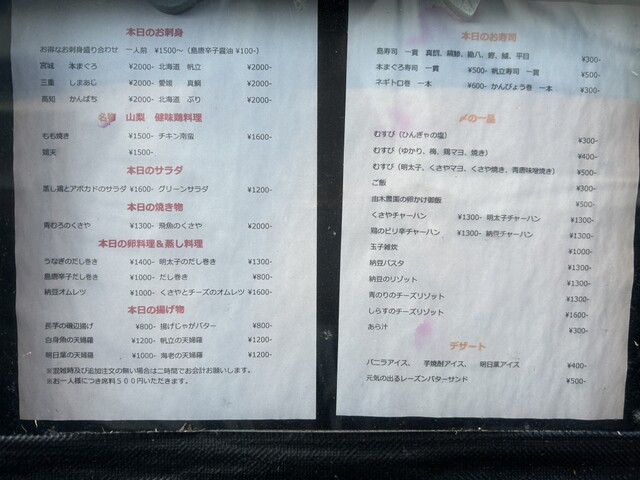 本日のお刺身
お得なお刺身盛り合わせ 一人前 ¥1500~(島唐辛子醤油 ¥100-)
宮城 本まぐろ ¥2000- 北海道 帆立 ¥2000-
三重 しまあじ ¥2000- 愛媛 真鯛 ¥2000-
高知 かんぱち ¥2000- 北海道 ぶり ¥2000-
名物 山梨 健味鶏料理
もも焼き ¥1500- チキン南蛮 ¥1600-
鶏天 ¥1500-
本日のサラダ
蒸し鶏とアボカドのサラダ ¥1600- グリーンサラダ ¥1200-
本日の焼き物
青むろのくさや ¥1300- 飛魚のくさや ¥2000-
本日の卵料理&蒸し料理
うなぎのだし巻き ¥1400- 明太子のだし巻き ¥1300-
島唐辛子だし巻き ¥1000- だし巻き ¥800-
納豆オムレツ ¥1000- くさやとチーズのオムレツ ¥1600-
本日の揚げ物
長芋の磯辺揚げ ¥800- 揚げじゃがバター ¥800-
白身魚の天婦羅 ¥1200- 帆立の天婦羅 ¥1200-
明日葉の天婦羅 ¥1000- 海老の天婦羅 ¥1200-
※混雑時及び追加注文の無い場合は二時間でお会計お願いします。
※お一人様につき席料500円いただきます。
本日のお寿司
島寿司 一貫 真鯛、縞鯵、勘八、鰤、鱸、平目 ¥300-
本まぐろ寿司 一貫 ¥500- 帆立寿司 一貫 ¥500-
ネギトロ巻 一本 ¥600- かんぴょう巻 一本 ¥300-
〆の一品
むすび(ひんぎゃの塩) ¥300-
むすび(ゆかり、梅、鶏マヨ、焼き) ¥400-
むすび(明太子、くさやマヨ、くさや焼き、青唐味噌焼き) ¥500-
ご飯 ¥300-
由木農園の卵かけ御飯 ¥500-
くさやチャーハン ¥1300- 明太子チャーハン ¥1300-
鶏のピリ辛チャーハン ¥1300- 納豆チャーハン ¥1300-
玉子雑炊 ¥1000-
納豆パスタ ¥1300-
納豆のリゾット ¥1300-
青のりのチーズリゾット ¥1300-
しらすのチーズリゾット ¥1600-
あら汁 ¥300-
デザート
バニラアイス、 芋焼酎アイス、 明日葉アイス ¥400-
元気の出るレーズンバターサンド ¥500-